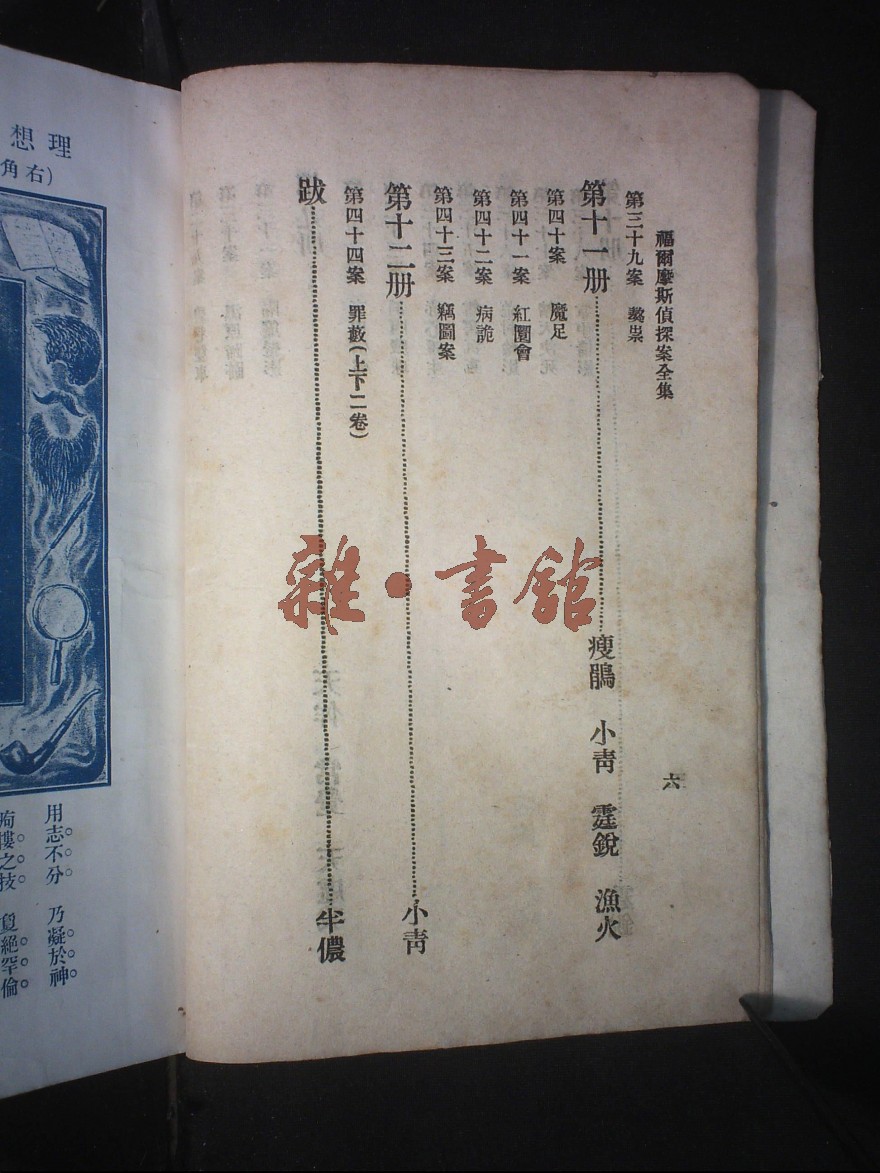 福爾摩斯偵探案全集
六
第三十九案 獒祟
第十一册 瘦鵑 小靑 霆銳 漁火
第四十案 魔足
第四十一案 紅圜會
第四十二案 病詭
第四十三案 竊圖案
第十二册 小靑
第四十四案 罪藪(上下二卷)
跋 半儂
雜·書舘
理想
(右角
用志不分 乃凝於神
之技 絕罕倫